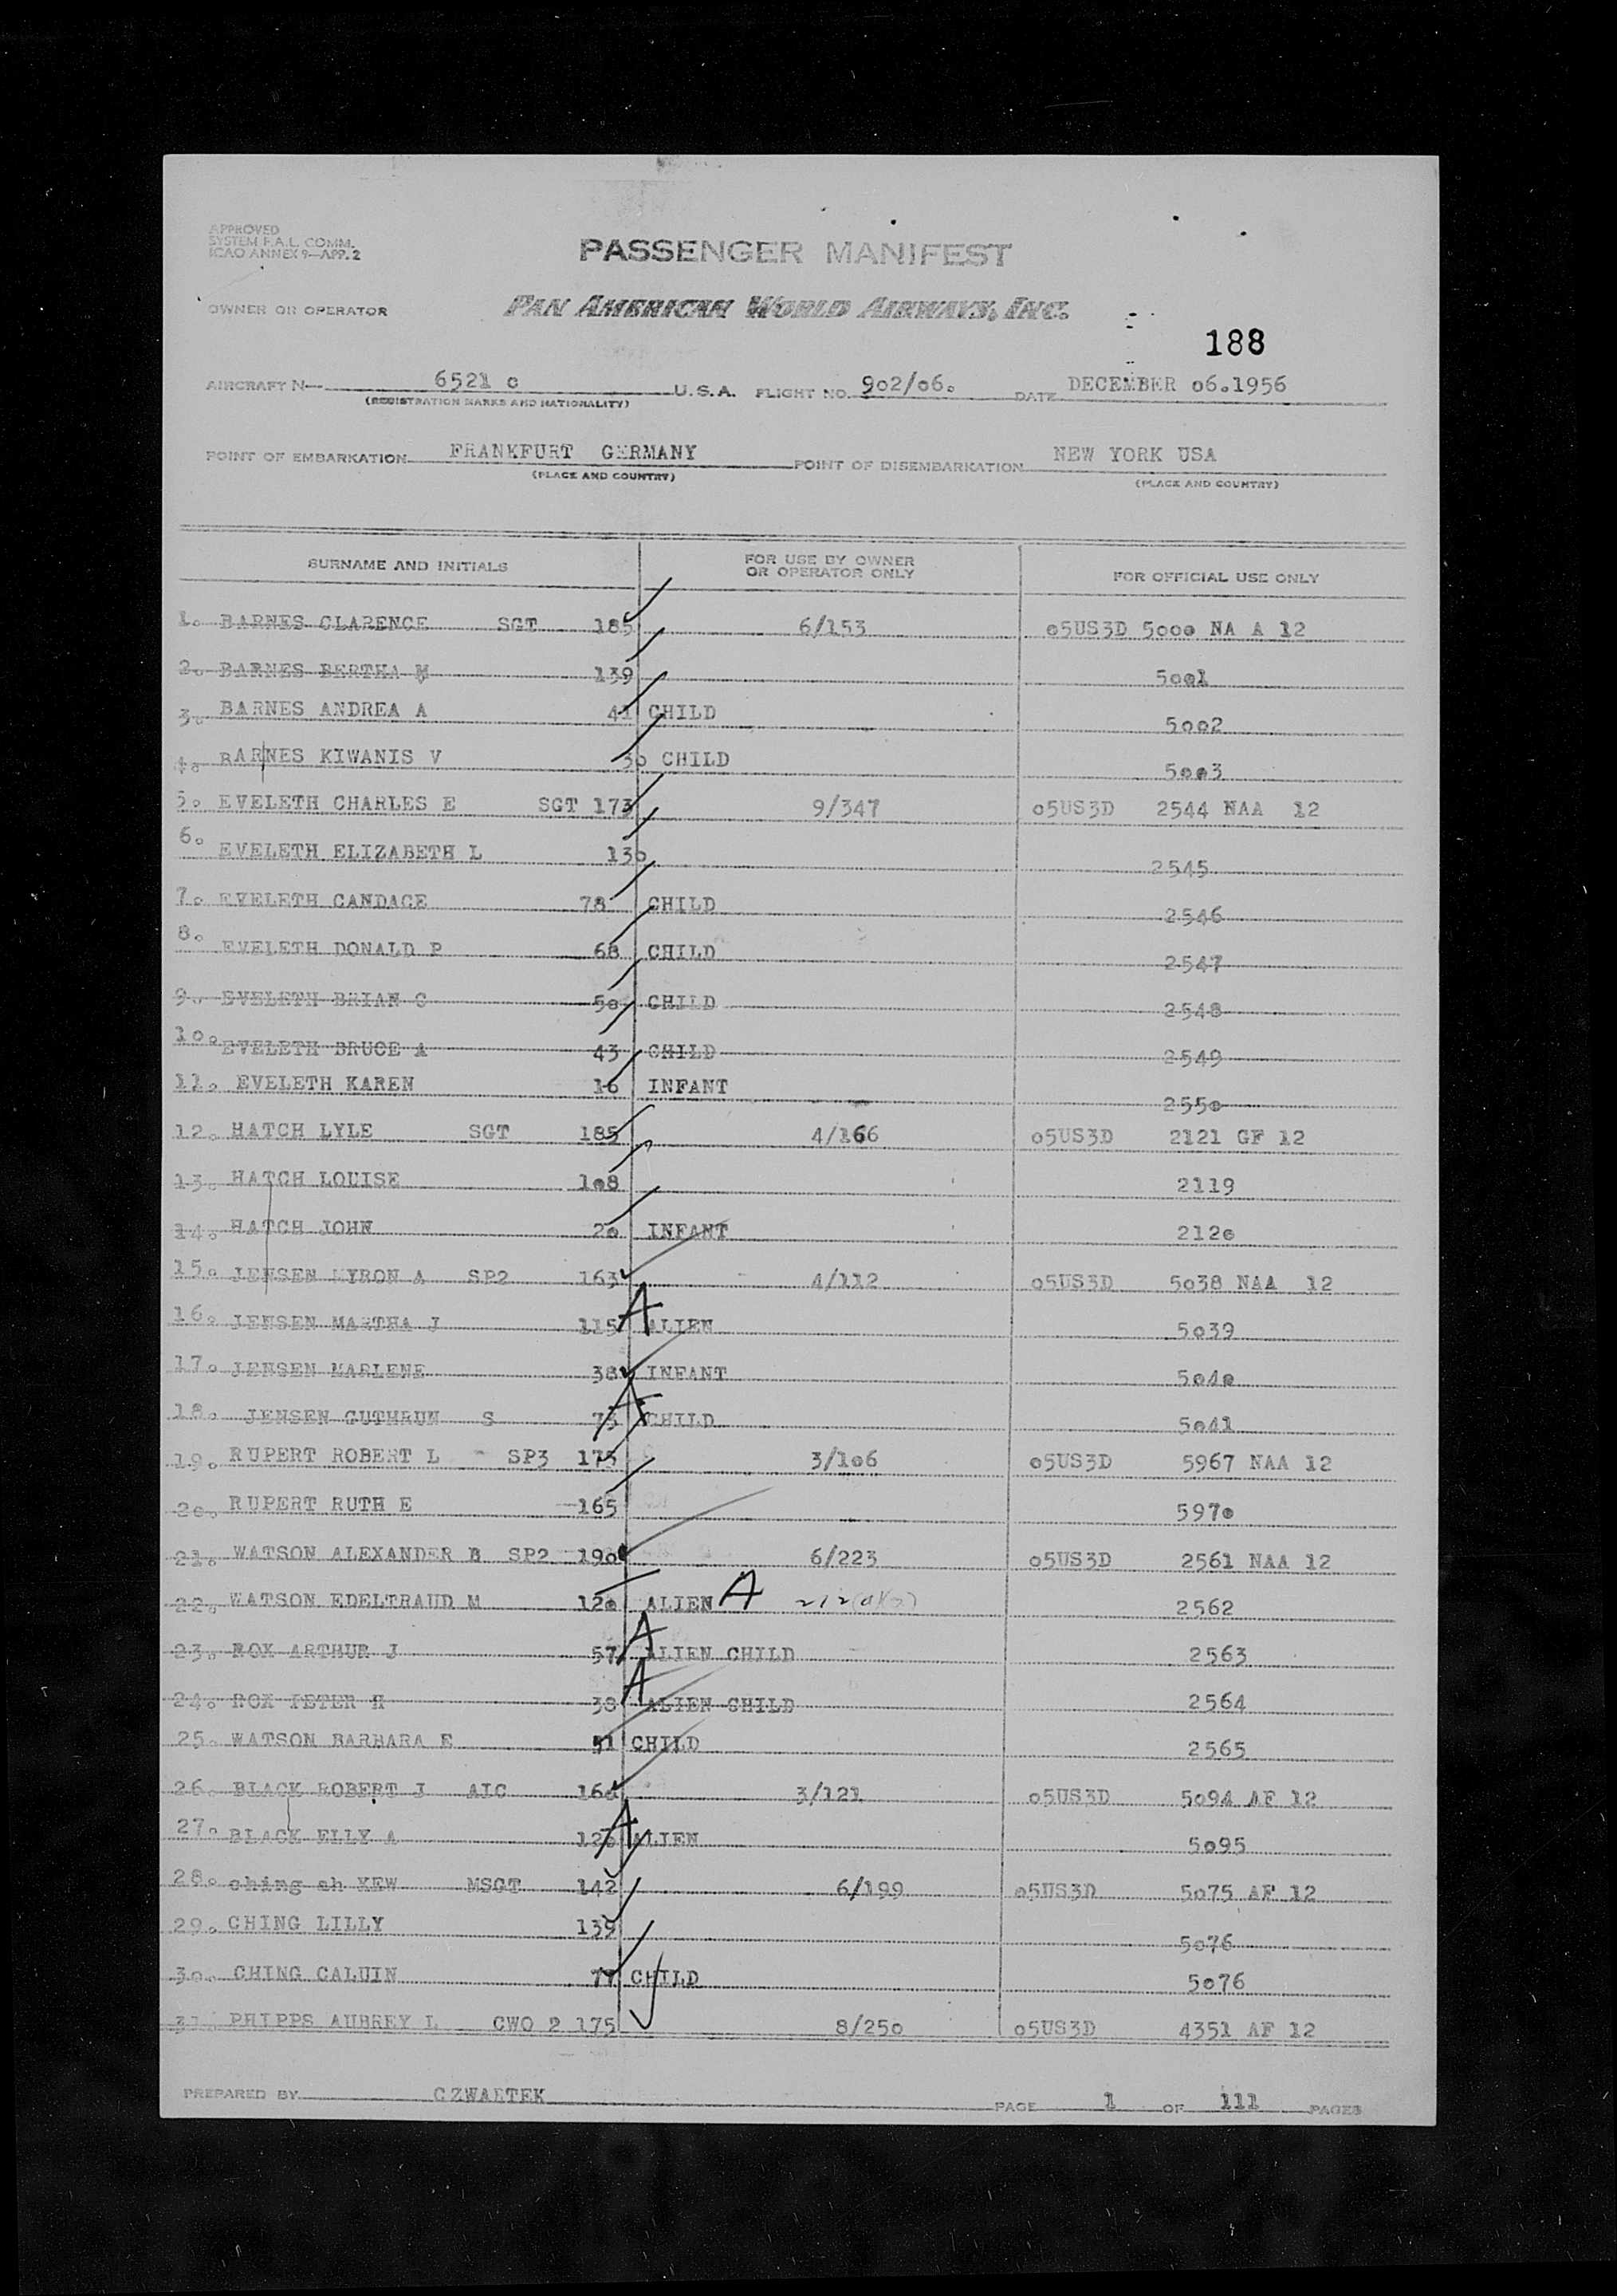 APPROVED
SYSTEM F.A.L. COMM.
ICAO ANNEX 9—APP. 2
PASSENGER MANIFEST
OWNER OR OPERATOR PAN AMERICAN WORLD AIRWAYS, INC.
188
AIRCRAFT N— 6521 c U.S.A. FLIGHT NO. 9o2/o6. DATE DECEMBER o6.1956
(REGISTRATION MARKS AND NATIONALITY)
POINT OF EMBARKATION FRANKFURT GERMANY POINT OF DISEMBARKATION NEW YORK USA
(PLACE AND COUNTRY) (PLACE AND COUNTRY)
SURNAME AND INITIALS FOR USE BY OWNER OR OPERATOR ONLY FOR OFFICIAL USE ONLY
1. BARNES CLARENCE SGT 185 6/153 o5US3D 5ooo NA A 12
2. BARNES BERTHA M 139 5oo1
3. BARNES ANDREA A 41 CHILD 5oo2
4. BARNES KIWANIS V 3o CHILD 5oo3
5. EVELETH CHARLES E SGT 173 9/347 o5US3D 2544 NAA 12
6. EVELETH ELIZABETH L 13o 2545
7. EVELETH CANDACE 78 CHILD 2546
8. EVELETH DONALD P 68 CHILD 2547
9. EVELETH BRIAN C 5o CHILD 2548
1o. EVELETH BRUCE A 43 CHILD 2549
11. EVELETH KAREN 16 INFANT 255o
12. HATCH LYLE SGT 185 4/166 o5US3D 2121 GF 12
13. HATCH LOUISE 1o8 2119
14. HATCH JOHN 2o INFANT 212o
15. JENSEN MYRON A SP2 163 4/112 o5US3D 5o38 NAA 12
16. JENSEN MARTHA J 115 A ALIEN 5o39
17. JENSEN MARLENE 38 INFANT 5o4o
18. JENSEN GUTHRUN S 75 A CHILD 5o41
19. RUPERT ROBERT L SP3 175 3/1o6 o5US3D 5967 NAA 12
2o. RUPERT RUTH E 165 597o
21. WATSON ALEXANDER B SP2 19o 6/223 o5US3D 2561 NAA 12
22. WATSON EDELTRAUD M 12o ALIEN A 2562
23. ROX ARTHUR J 57 A ALIEN CHILD 2563
24. ROX PETER H 38 A ALIEN CHILD 2564
25. WATSON BARBARA E 51 CHILD 2565
26. BLACK ROBERT J AIC 3/121 o5US3D 5o94 AF 12
27. BLACK ELLY A A ALIEN 5o95
28. ching ah KEW MSGT 142 6/199 o5US3D 5o75 AF 12
29. CHING LILLY 139 5o76
3o. CHING CALUIN 77 CHILD 5o76
31. PHIPPS AUBREY L CWO 2 175 8/25o o5US3D 4351 AF 12
PREPARED BY CZWARTEK PAGE 1 OF 111 PAGES